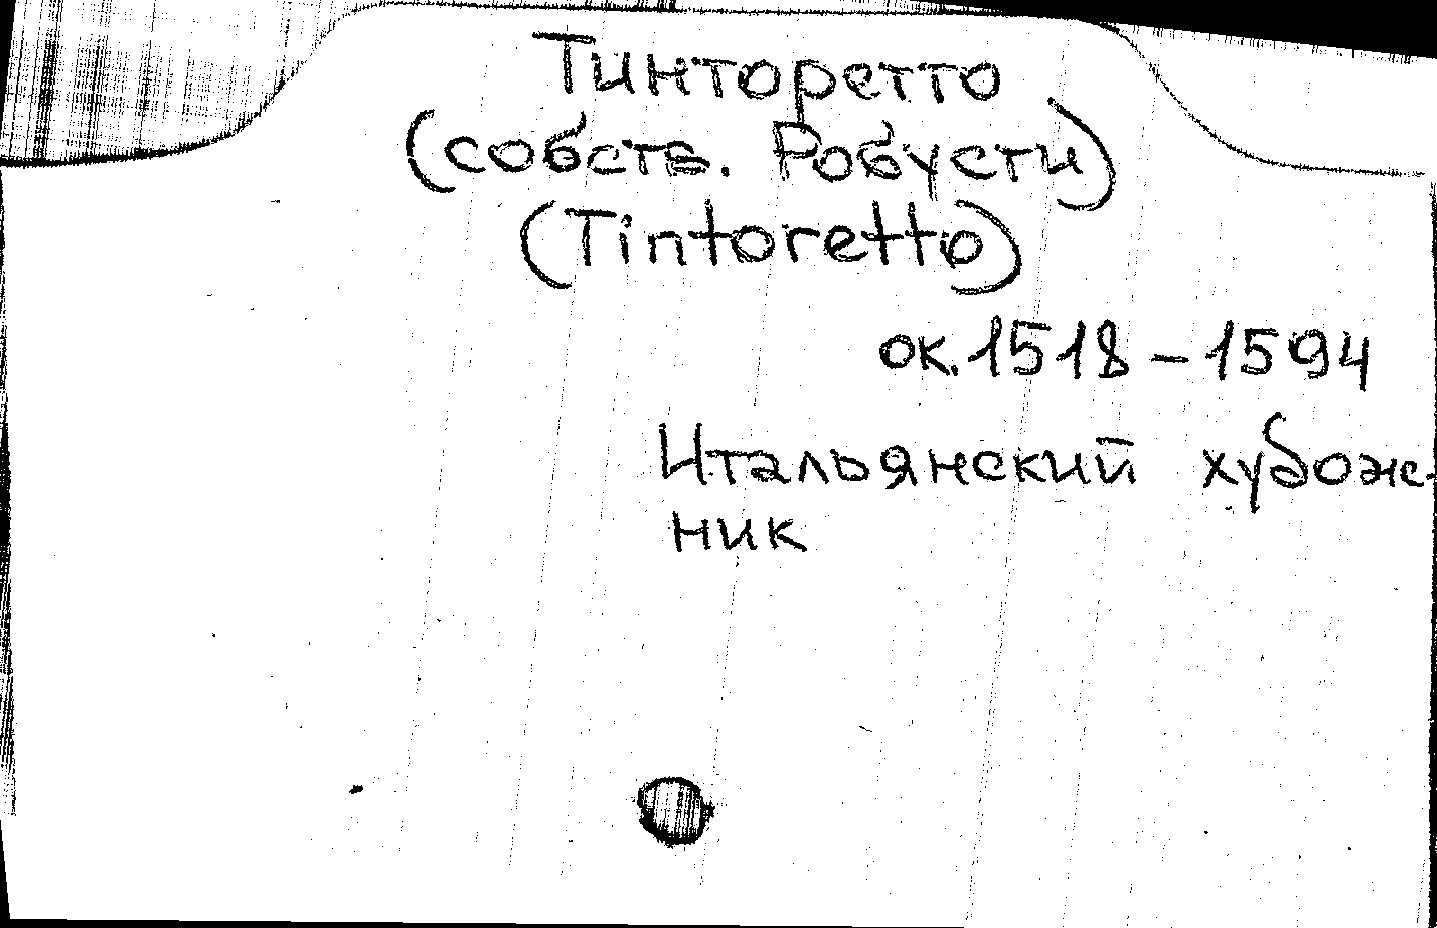 Тинторетто
(собств. Робусти)
(Tintoretto)
ок. 1518 – 1594
Итальянский худож-
ник